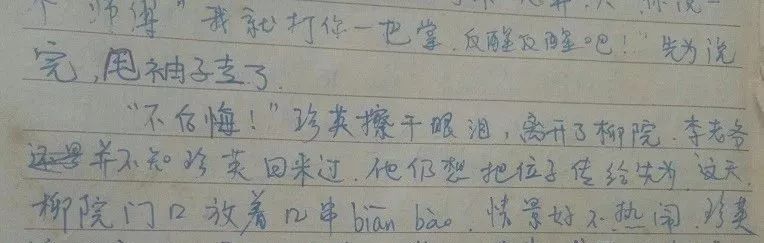 个"师傅"我就打你一巴掌.反醒反醒吧!"先为说
完,甩袖子走了.
"不后悔!"珍英擦干眼泪,离开了柳院.李老爷
并不知珍英回来过.他仍想把位子传给先为.这天
柳院门口放着几串biān bào.情景好不热闹.珍英